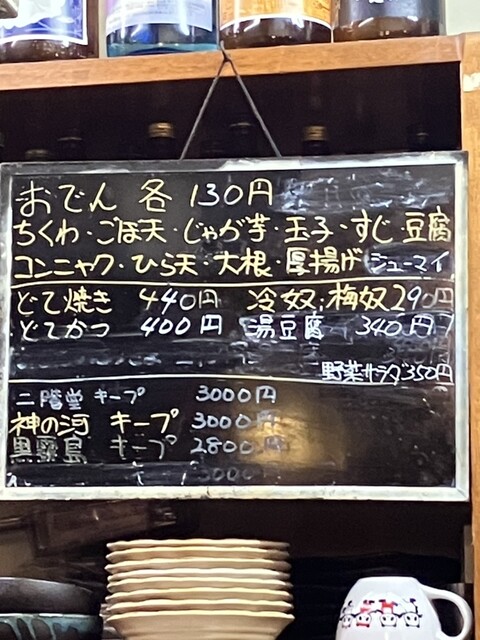 おでん 各 130円
ちくわ・ごぼ天・じゃが芋・玉子・すじ・豆腐
コンニャク・ひら天・大根・厚揚げ シューマイ
どて焼き 440円 冷奴・梅奴290円
どてかつ 400円 湯豆腐 340円
野菜サラダ350円
二階堂 キープ 3000円
神の河 キープ 3000円
黒霧島 キープ 2800円
3000円